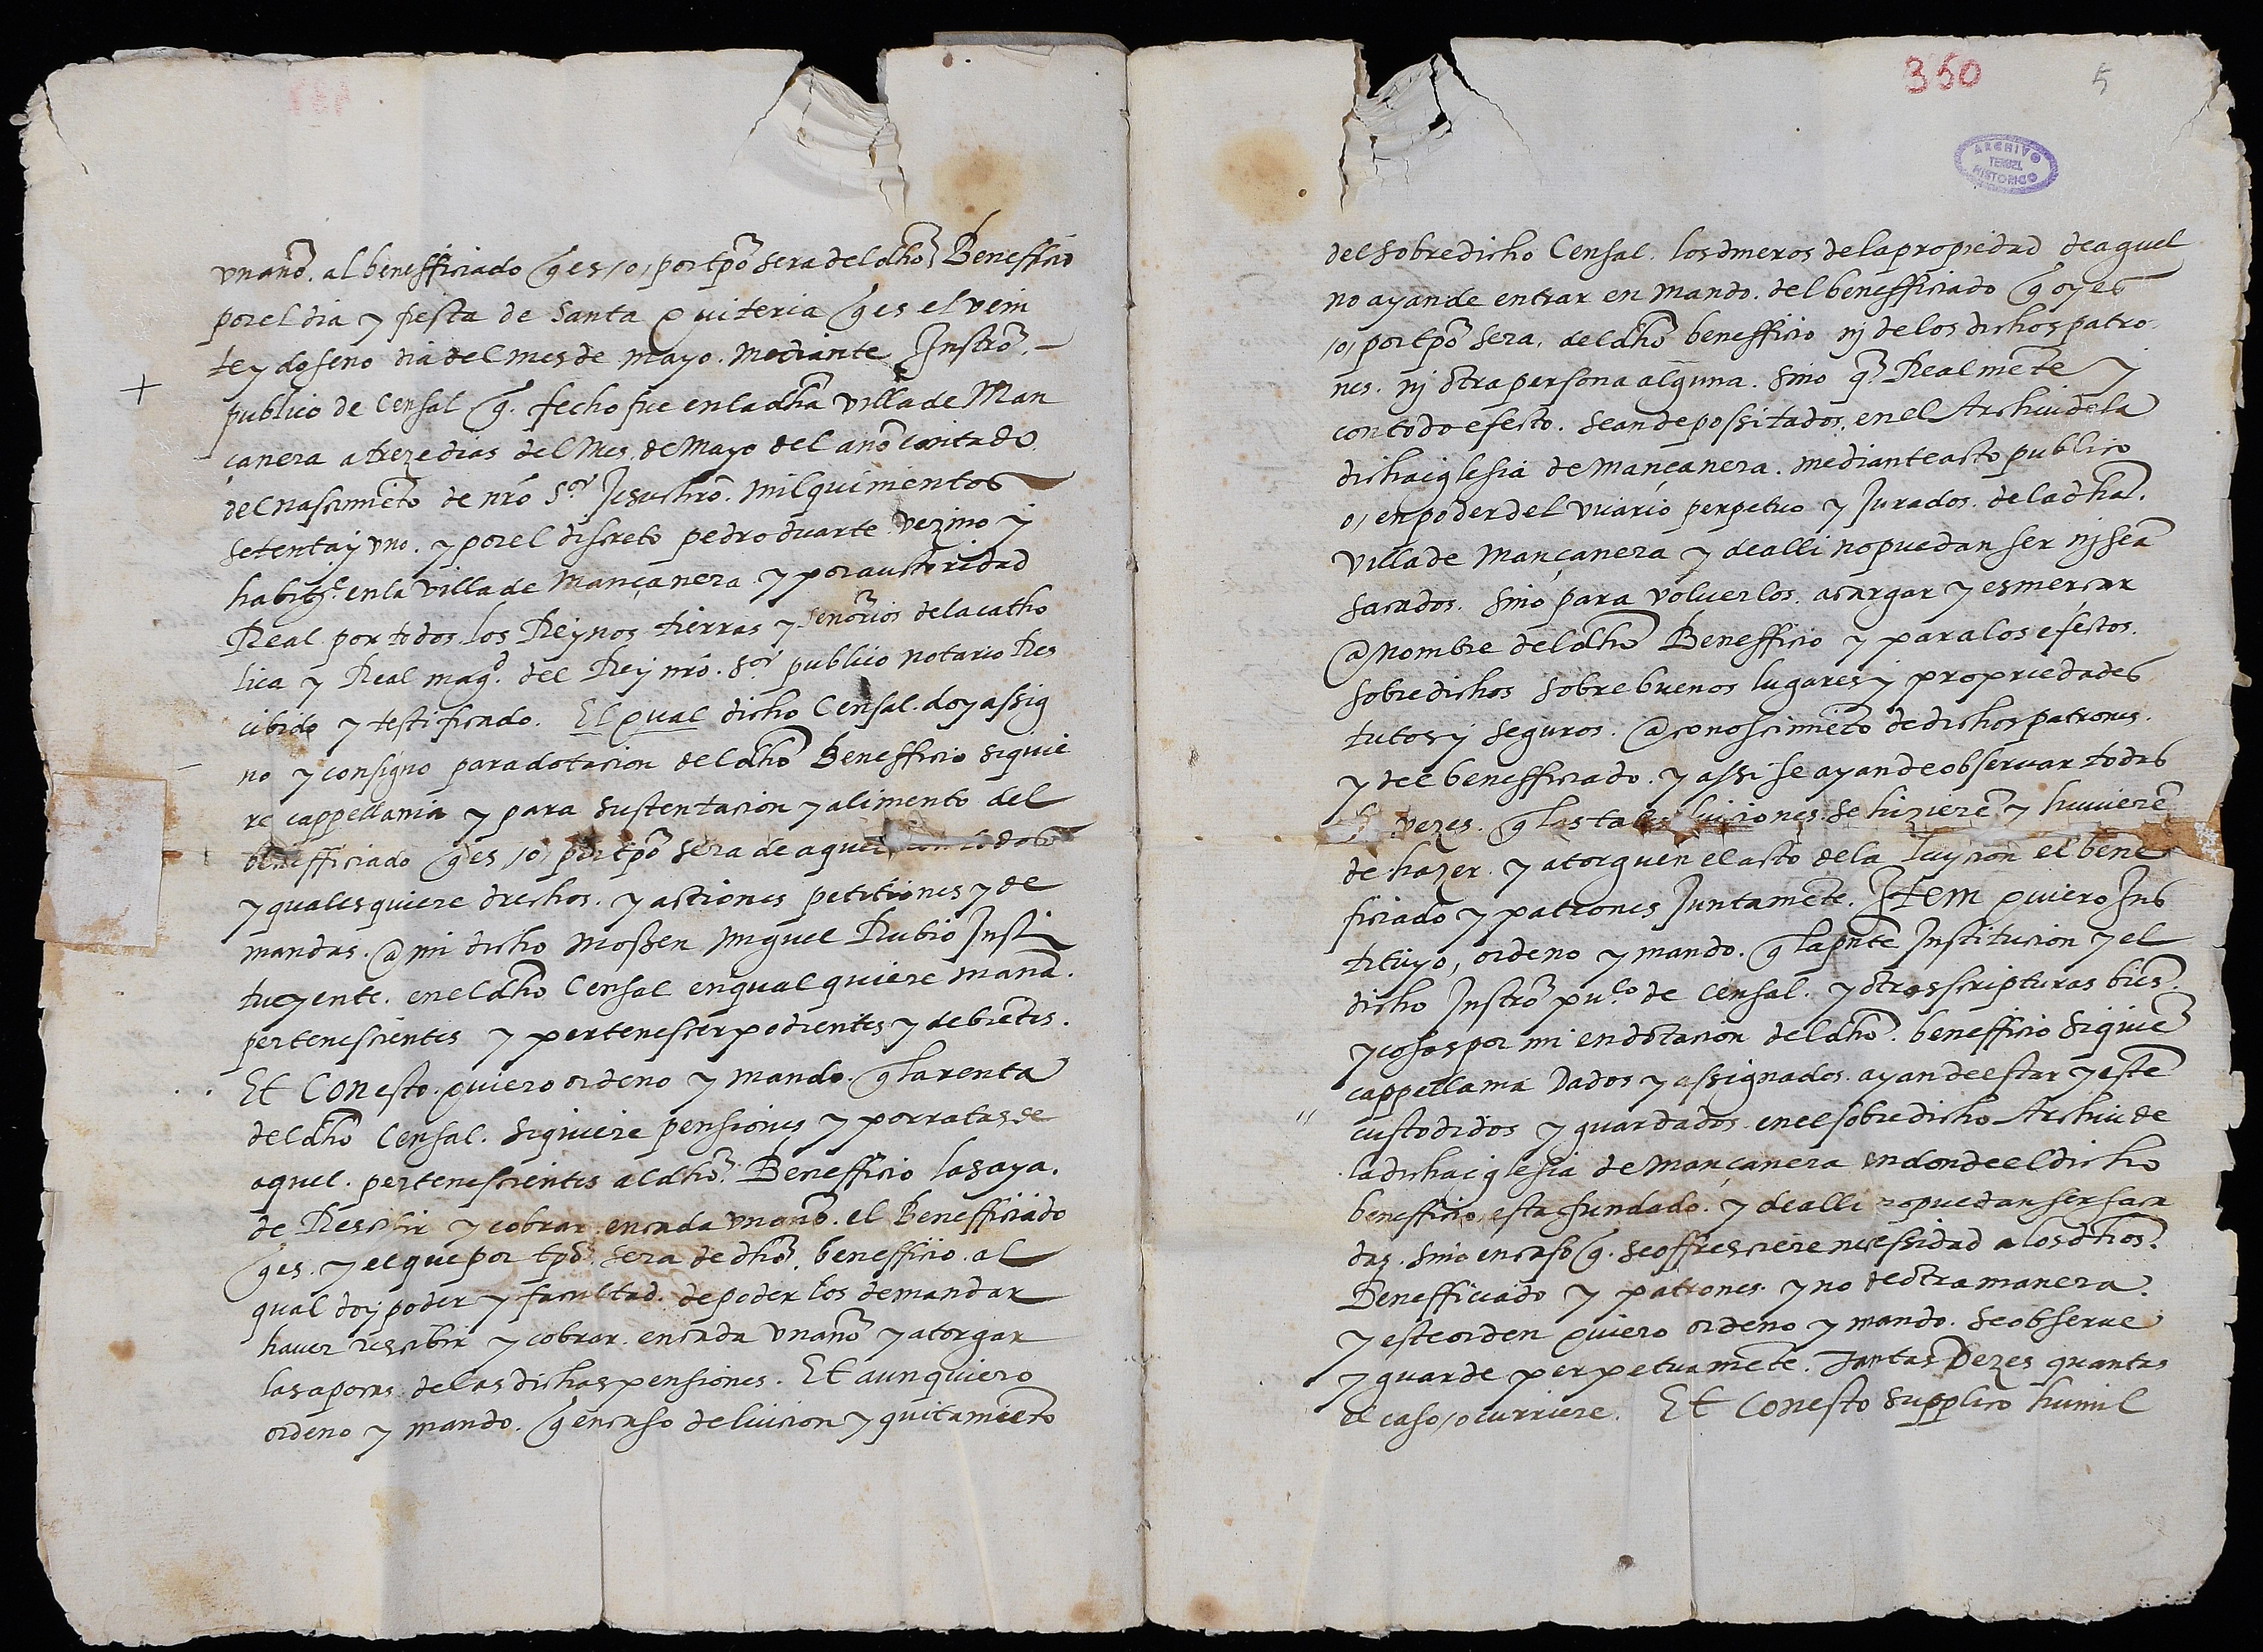 vn año. al benefficiado q̃ es /o/ por tp̃o sera del dho Benefficio
por el dia y fiesta de Santa Quiteria q̃ es el vein
te y doseno dia del mes de mayo. mediante Instro.
publico de Censal q̃. fecho fue en la dha villa de Man
çanera a treze dias del Mes de Mayo del año contado
del nascimiẽto de nro Sor Jesuchro. mil quinientos
setenta y vno. y por el discreto pedro duarte vezino y
habite. en la villa de Mançanera y por auctoridad
Real por todos los Reynos tierras y señorios de la catho
lica y Real magd. del Rey nro. Sor publico notario Res
cibido y testificado. El qual dicho Censal. doy assig
no y consigno para dotacion del dho Benefficio siquie
re cappellania y para sustentacion y alimento del
benefficiado q̃ es /o/ por tp̃o sera de aquel con todos
y quales quiere drechos. y actiones petitiones y de
mandas. @ mi dicho Mossen Miguel Rubio Insti
tuyente. en el dho Censal en qual quiere manã.
pertenescientes y pertenescer podientes y debiẽtes.
Et Con esto. quiero ordeno y mando. q̃ la renta
del dho Censal. siquiere pensiones y porratas de
aquel. pertenescientes al dho. Benefficio las aya.
de Rescibir y cobrar en cada vn año. el Benefficiado
q̃ es. y el que por tp̃o. sera de dho. benefficio. al
qual doy poder y facultad. de poder los demandar
hauer rescibir y cobrar. en cada vn año y atorgar
las apocas de las dichas pensiones. Et aun quiero
ordeno y mando. q̃ en caso de luicion y quitamiẽto
350
5
ARCHIVO
TERUEL
HISTORICO
del sobredicho Censal. los dineros de la propiedad de aquel
no ayan de entrar en mando. del benefficiado q̃ oy es
/o/ por tp̃o sera. del dho benefficio nj de los dichos patro
nes. nj otra persona alguna. sino q̃. Realmẽte y
con todo efecto. sean depossitados. en el Archiu de la
dicha iglesia de Mançanera. mediante acto publico
o/ en poder del vicario perpetuo y Jurados. de la dha.
villa de Mançanera y de alli no puedan ser nj seã
sacados. sino para voluerlos. a cargar y esmerçar
@ Nombre del dho Benefficio y para los efectos.
sobredichos sobre buenos lugares y propriedades
tutos y seguros. @ conoscimiẽto de dichos patrones.
y del benefficiado. y assi se ayan de obseruar todas
vezes. q̃ las tales luiciones se hizierẽ y huuierẽ
de hazer. y atorguen el acto de la luycion el bene
ficiado y patrones Juntamẽte. Item quiero Ins
tituyo, ordeno y mando. q̃ la pnte Institucion y el
dicho Instro puco de Censal. y otras scripturas biẽs.
y cosas por mi en dotacion del dho. benefficio siquiẽ
cappellania Dados y assignados. ayan de estar y estẽ
custodidos y guardados en el sobredicho Archiu de
la dicha iglesia de Mançanera en donde el dicho
benefficio esta fundado. y de alli no puedan ser saca
das. sino en caso q̃. se offresciere necessidad a los dhos.
Benefficiado y patrones. y no de otra manera.
y este orden quiero ordeno y mando. se obserue
y guarde perpetuamẽte. Tantas Vezes quantas
el caso /ocurriere. Et Con esto supplico humil